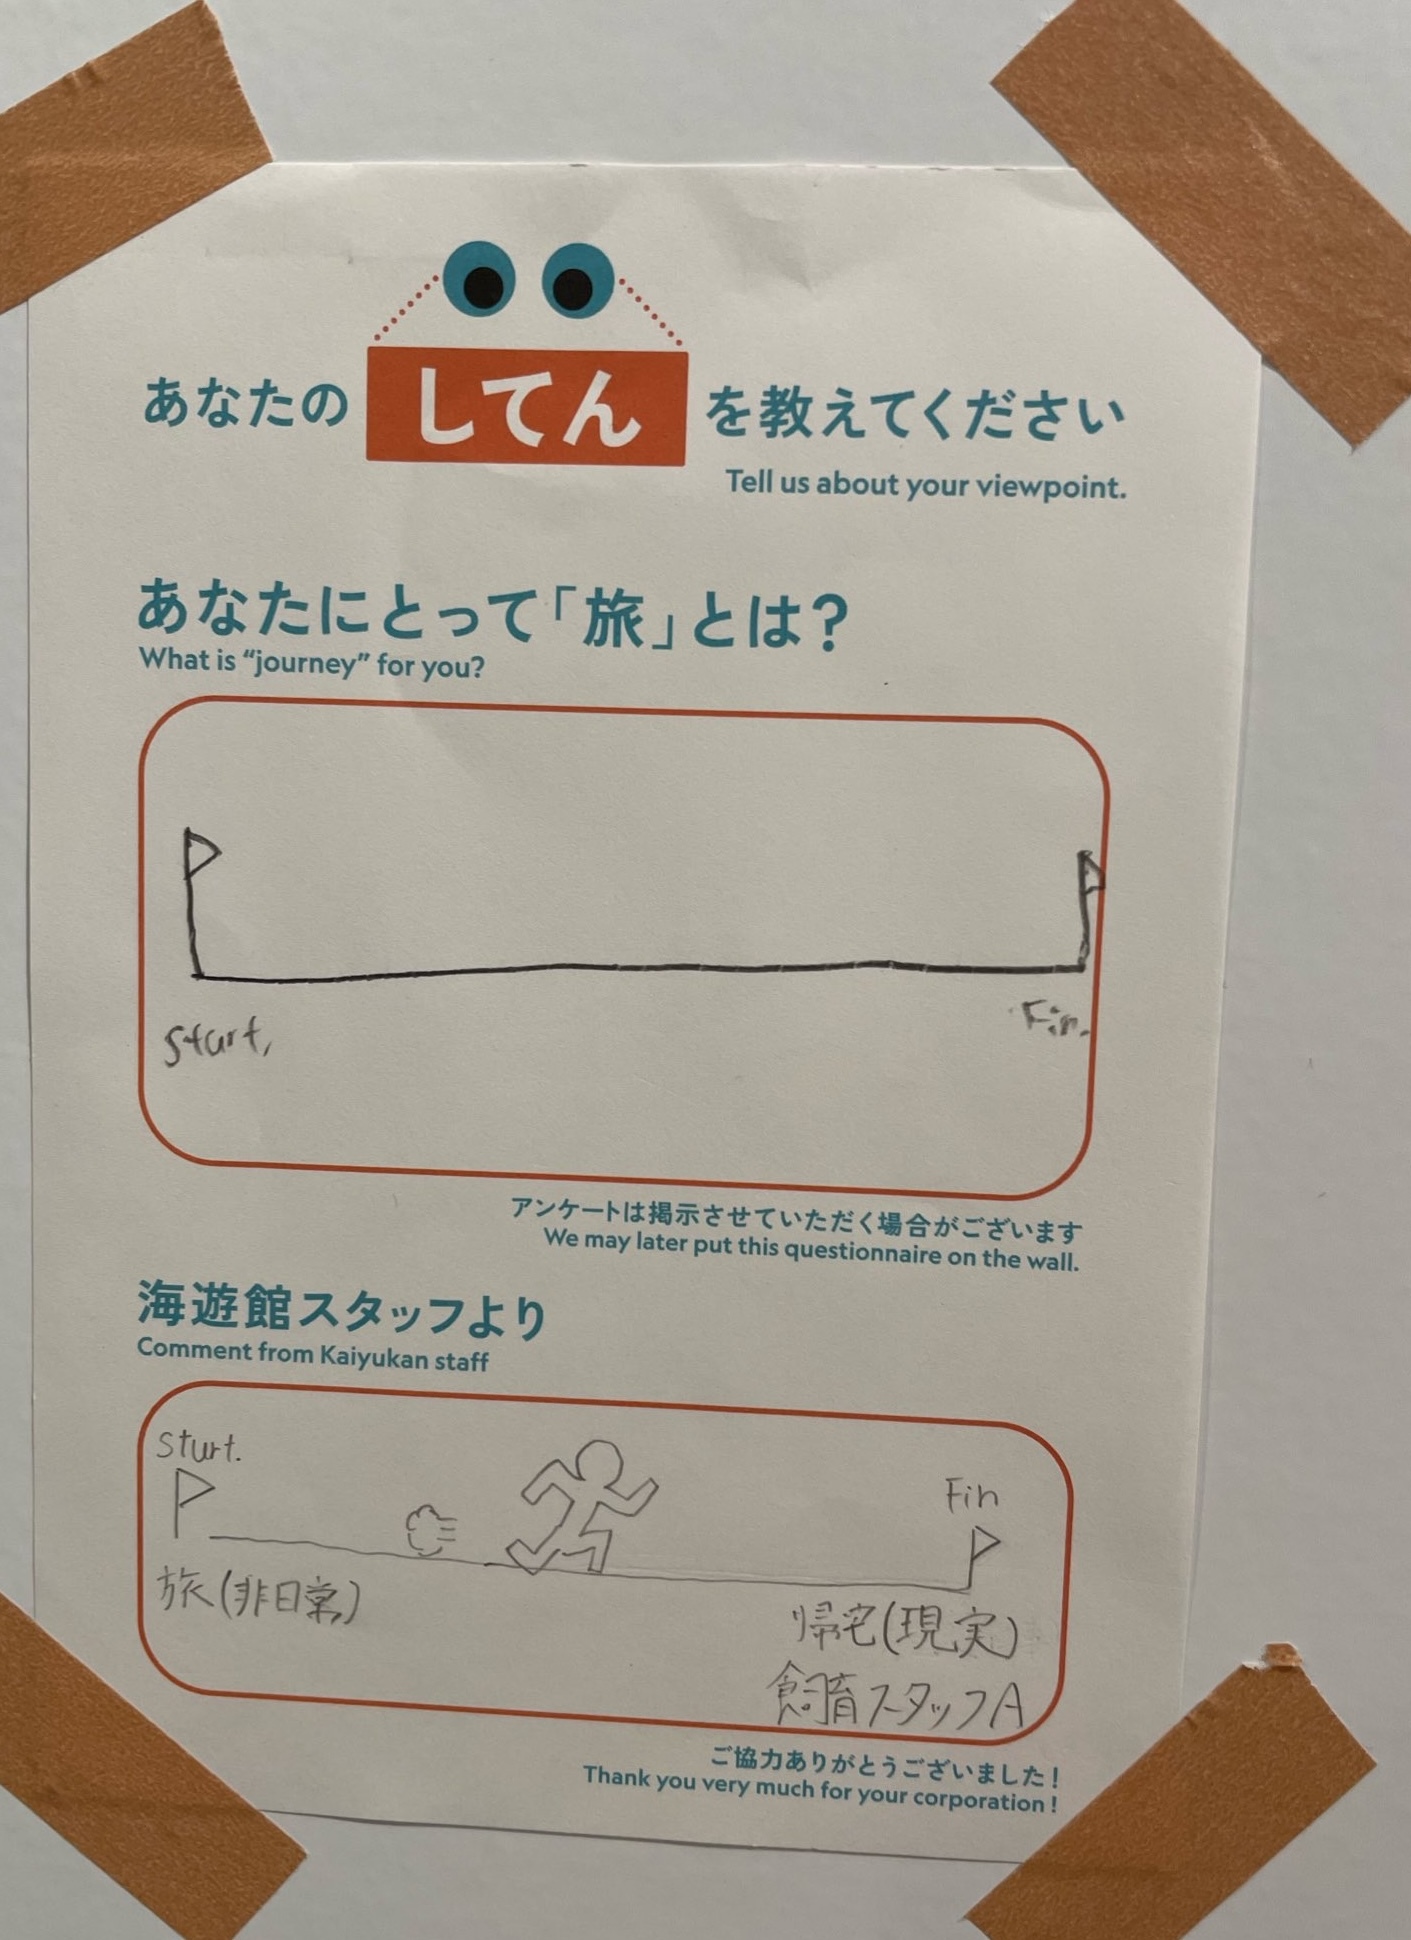 あなたの してん を教えてください
Tell us about your viewpoint.
あなたにとって「旅」とは?
What is “journey” for you?
Start,
Fin.
アンケートは掲示させていただく場合がございます
We may later put this questionnaire on the wall.
海遊館スタッフより
Comment from Kaiyukan staff
Sturt.
Fin
旅(非日常)
帰宅(現実)
飼育スタッフA
ご協力ありがとうございました!
Thank you very much for your corporation !